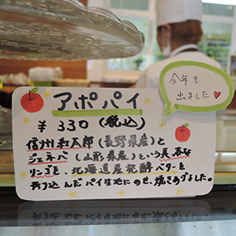 今年も
出ました♥
アポパイ
¥330(税込)
信州紅太郎(長野県産)と
ジェネバ(山形県産)という真っ赤な
リンゴを、北海道産発酵バターを
折り込んだパイ生地にのせ、焼きあげました。